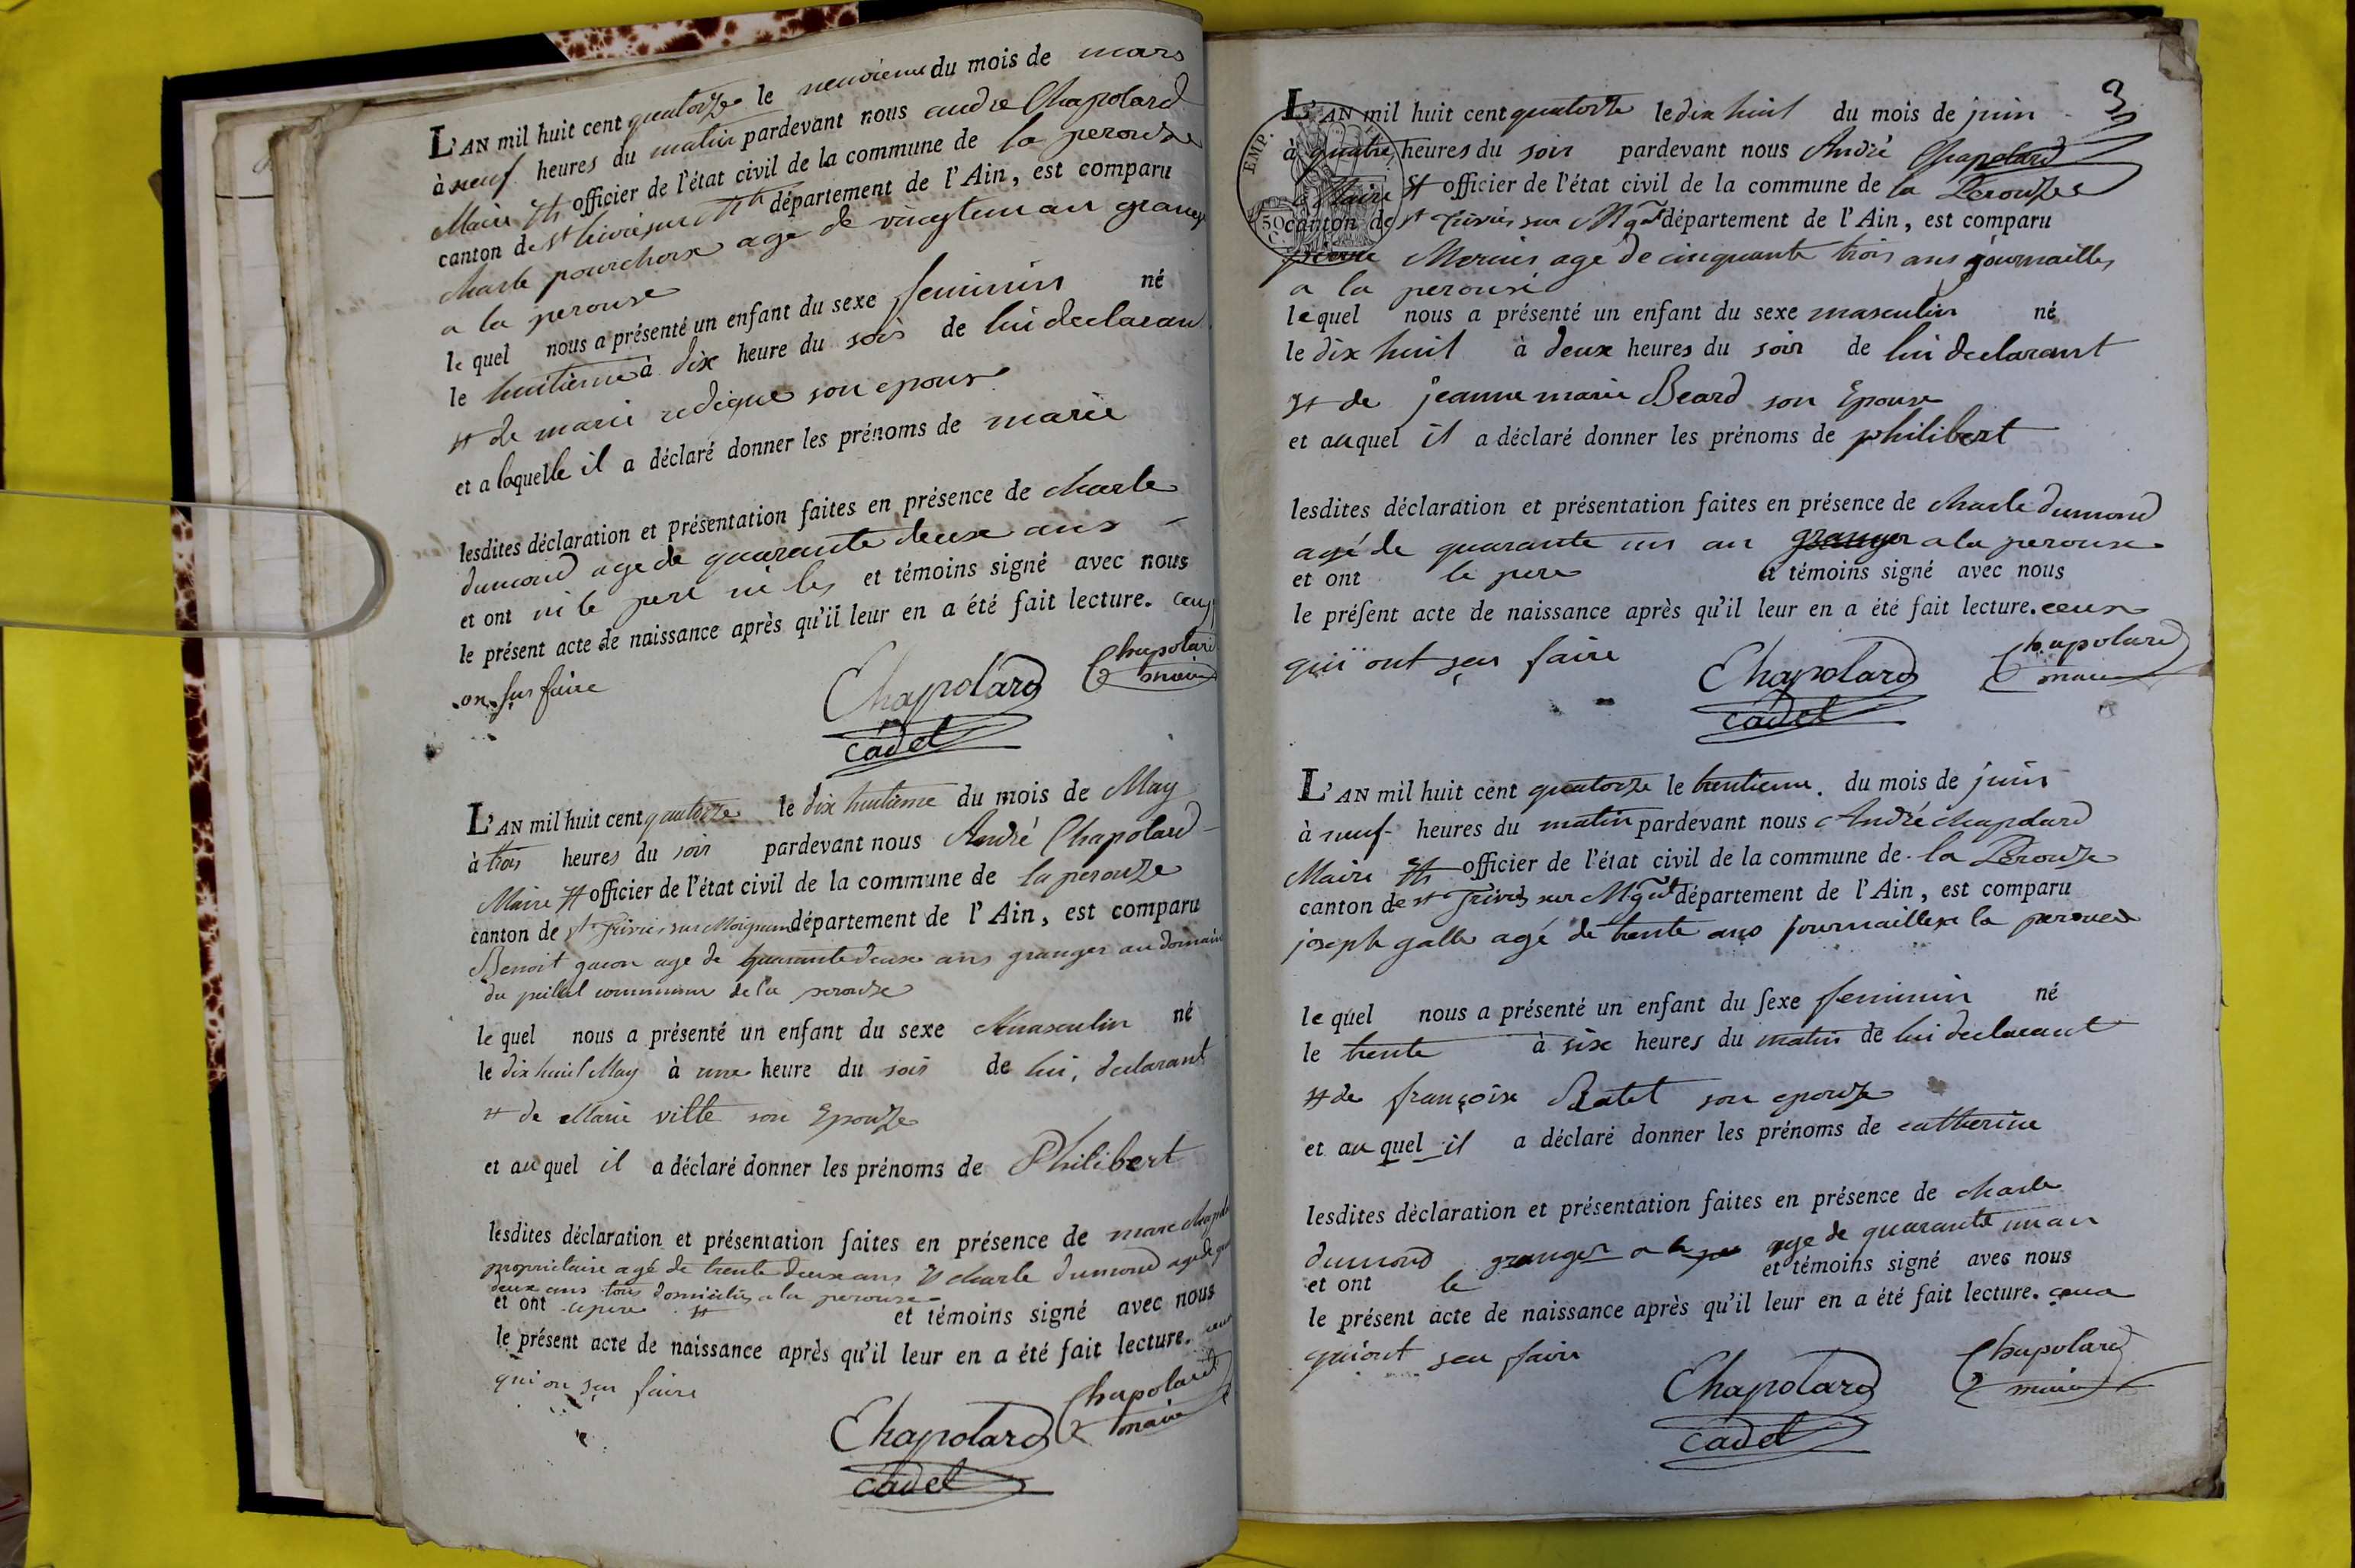 L'AN mil huit cent quatorze le neuvieme du mois de mars
à neuf heures du matin pardevant nous andre Chapolard
Maire et officier de l'état civil de la commune de la perouse
canton de St département de l'Ain, est comparu
charle age de vingt un an granger
a la perouse
le quel nous a présenté un enfant du sexe feminin né
le huitieme à dix heure du soir de lui declarant
et de marie son epouse
et a laquelle il a déclaré donner les prénoms de marie
lesdites déclaration et présentation faites en présence de charle
dumond age de quarante deux ans
et ont ni le pere ni les et témoins signé avec nous
le présent acte de naissance après qu'il leur en a été fait lecture.
on sus faire
Chapolard
cadet
Chapolard
maire
L'AN mil huit cent quatorze le dix huitieme du mois de May
à trois heures du soir pardevant nous André Chapolard
Maire et officier de l'état civil de la commune de la perouze
canton de st Trivier sur Moignan département de l'Ain, est comparu
Benoit age de quarante deux ans granger au domaine
du commune de la perouze
le quel nous a présenté un enfant du sexe Masculin né
le dix huit May à une heure du soir de lui, declarant
et de Marie ville son Epouze
et au quel il a déclaré donner les prénoms de Philibert
lesdites déclaration et présentation faites en présence de marc
proprietaire agé de trente deux ans et charle dumond age de
deux ans tous domicilies a la perouse
et ont le pere et et témoins signé avec nous
le présent acte de naissance après qu'il leur en a été fait lecture. ceux
qui on seu faire
Chapolard
cadet
Chapolard
maire
3
L'AN mil huit cent quatorze le dix huit du mois de juin
à quatre heures du soir pardevant nous André Chapolard
Maire et officier de l'état civil de la commune de la Perouze
canton de st Trivier sur département de l'Ain, est comparu
pierre age de cinquante trois ans journaillier
a la perouse
le quel nous a présenté un enfant du sexe masculin né
le dix huit à deux heures du soir de lui declarant
et de jeanne marie Beard son Epouse
et au quel il a déclaré donner les prénoms de philibert
lesdites déclaration et présentation faites en présence de charle dumond
agé de quarante un an granger a la perouse
et ont le pere et témoins signé avec nous
le présent acte de naissance après qu'il leur en a été fait lecture. ceux
qui ont seu faire
Chapolard
cadet
Chapolard
maire
L'AN mil huit cent quatorze le trentieme du mois de juin
à neuf heures du matin pardevant nous André chapolard
Maire et officier de l'état civil de la commune de la Perouze
canton de st Trivier sur département de l'Ain, est comparu
joseph galle agé de trente ans journaillier a la perouse
le quel nous a présenté un enfant du sexe feminin né
le trente à six heures du matin de lui declarant
et de françoise Ratet son epouze
et au quel il a déclaré donner les prénoms de catherine
lesdites déclaration et présentation faites en présence de charle
dumond granger a la age de quarante un an
et ont le et témoins signé avec nous
le présent acte de naissance après qu'il leur en a été fait lecture. ceux
qui ont seu faire
Chapolard
cadet
Chapolard
maire